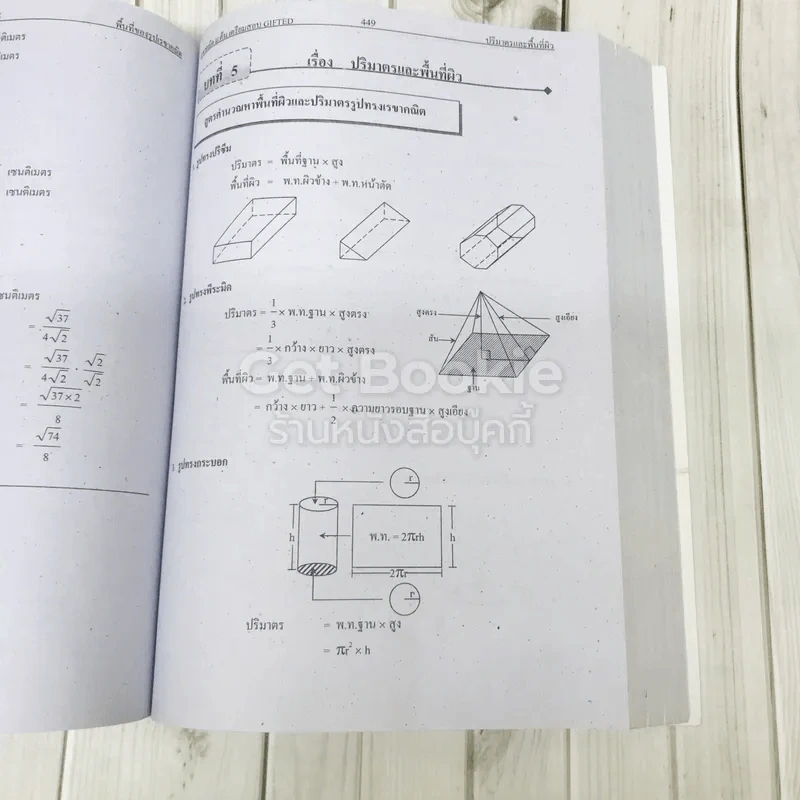 พื้นที่ของรูปเรขาคณิต
เซนติเมตร
เซนติเมตร
= √37
4√2
= √37 . √2
4√2 √2
= √37×2
8
= √74
8
เตรียมสอบ GIFTED
449
ปริมาตรและพื้นที่ผิว
บทที่ 5
เรื่อง ปริมาตรและพื้นที่ผิว
สูตรคำนวณหาพื้นที่ผิวและปริมาตรรูปทรงเรขาคณิต
รูปทรงปริซึม
ปริมาตร = พื้นที่ฐาน × สูง
พื้นที่ผิว = พ.ท.ผิวข้าง + พ.ท.หน้าตัด
2. รูปทรงพีระมิด
ปริมาตร = 1/3 × พ.ท.ฐาน × สูงตรง
= 1/3 × กว้าง × ยาว × สูงตรง
พื้นที่ผิว = พ.ท.ฐาน + พ.ท.ผิวข้าง
= กว้าง × ยาว + 1/2 × ความยาวรอบฐาน × สูงเอียง
สูงตรง
สูงเอียง
สัน
ฐาน
Get Bookie
ร้านหนังสือบุ๊คกี้
3. รูปทรงกระบอก
r
r
h
พ.ท. = 2πrh
h
2πr
r
ปริมาตร = พ.ท.ฐาน × สูง
= πr² × h